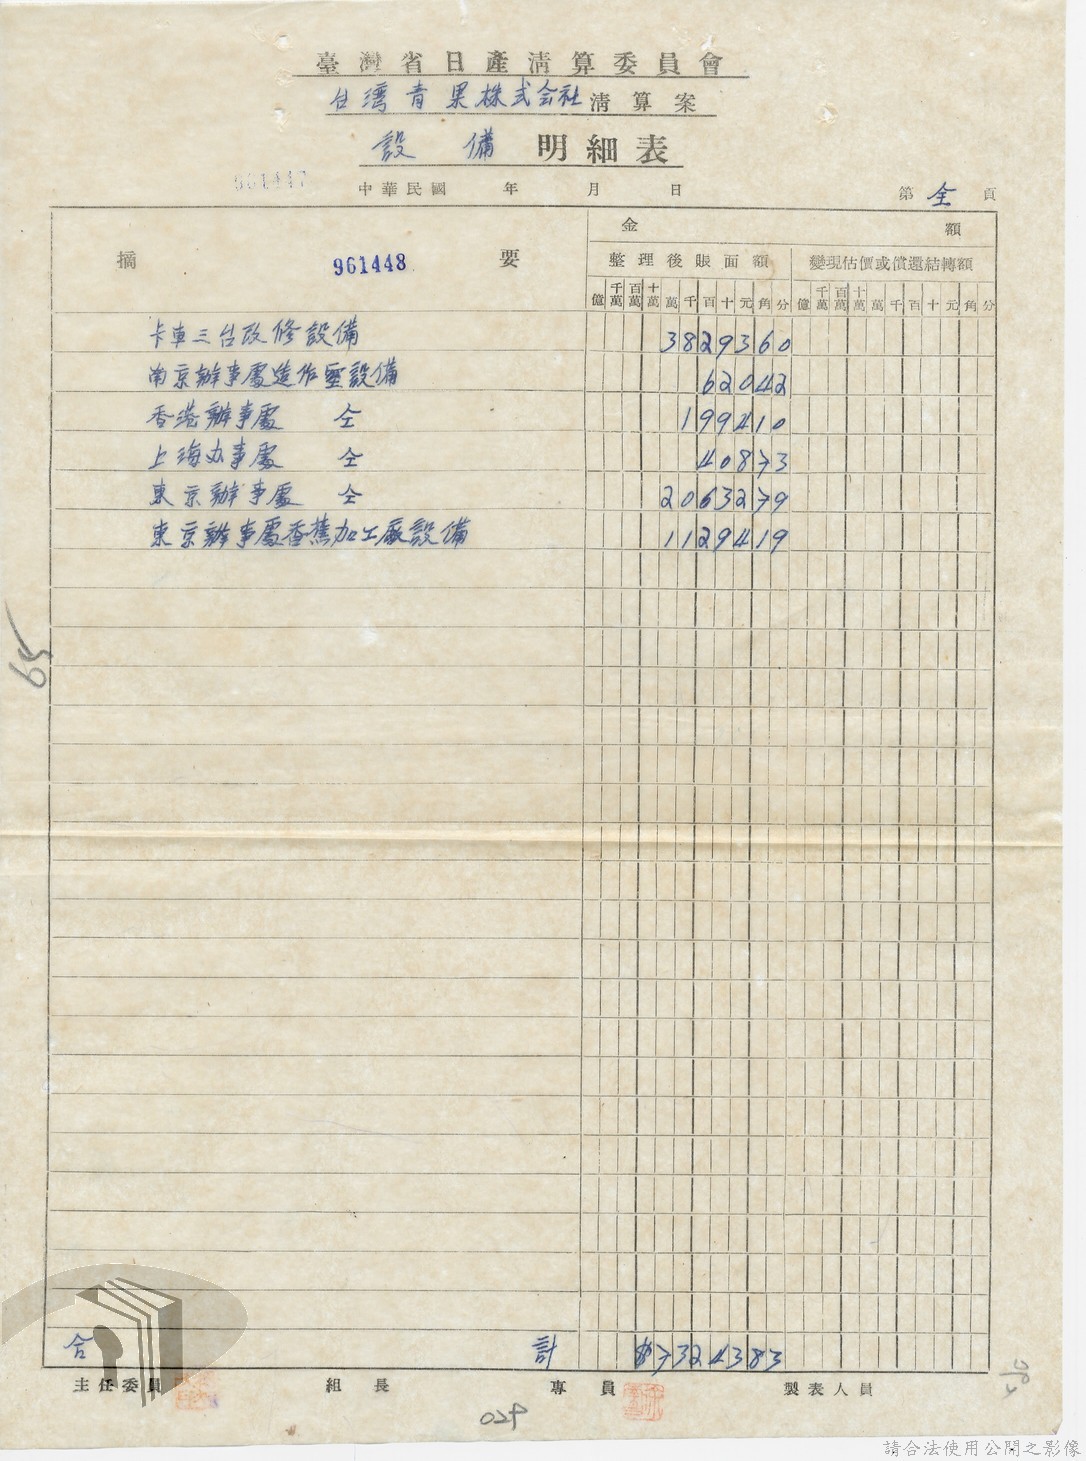 臺灣省日產清算委員會
台湾青果株式会社清算案
設備明細表
961447
中華民國 年 月 日
第全頁
摘 要
961448
金 額
整理後賬面額
變現估價或償還結轉額
億 千萬 百萬 十萬 萬 千 百 十 元 角 分
億 千萬 百萬 十萬 萬 千 百 十 元 角 分
卡車三台改修設備 3829360
南京辦事處造作並設備 62042
香港辦事處 仝 199410
上海办事處 仝 40873
東京辦事處 仝 2063279
東京辦事處香蕉加工廠設備 1129419
65
合計 $7324383
主任委員 組長 專員 製表人員
029
請合法使用公開之影像